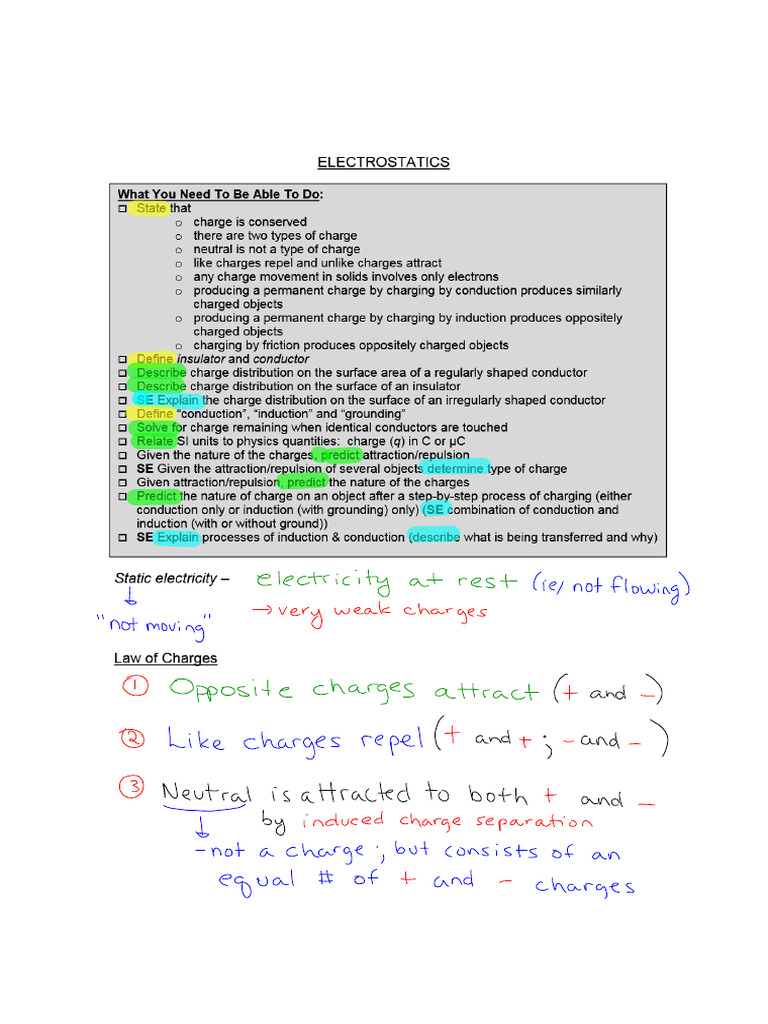 ELECTROSTATICS
What You Need To Be Able To Do:
❑ State that
o charge is conserved
o there are two types of charge
o neutral is not a type of charge
o like charges repel and unlike charges attract
o any charge movement in solids involves only electrons
o producing a permanent charge by charging by conduction produces similarly
charged objects
o producing a permanent charge by charging by induction produces oppositely
charged objects
o charging by friction produces oppositely charged objects
❑ Define insulator and conductor
❑ Describe charge distribution on the surface area of a regularly shaped conductor
❑ Describe charge distribution on the surface of an insulator
❑ SE Explain the charge distribution on the surface of an irregularly shaped conductor
❑ Define “conduction”, “induction” and “grounding”
❑ Solve for charge remaining when identical conductors are touched
❑ Relate SI units to physics quantities: charge (q) in C or µC
❑ Given the nature of the charges, predict attraction/repulsion
❑ SE Given the attraction/repulsion of several objects determine type of charge
❑ Given attraction/repulsion, predict the nature of the charges
❑ Predict the nature of charge on an object after a step-by-step process of charging (either
conduction only or induction (with grounding) only) (SE combination of conduction and
induction (with or without ground))
❑ SE Explain processes of induction & conduction (describe what is being transferred and why)
Static electricity – electricity at rest (ie/ not flowing)
→ very weak charges
"not moving"
Law of Charges
① Opposite charges attract (+ and -)
② Like charges repel (+ and +; - and -)
③ Neutral is attracted to both + and -
by induced charge separation
- not a charge; but consists of an
equal # of + and - charges